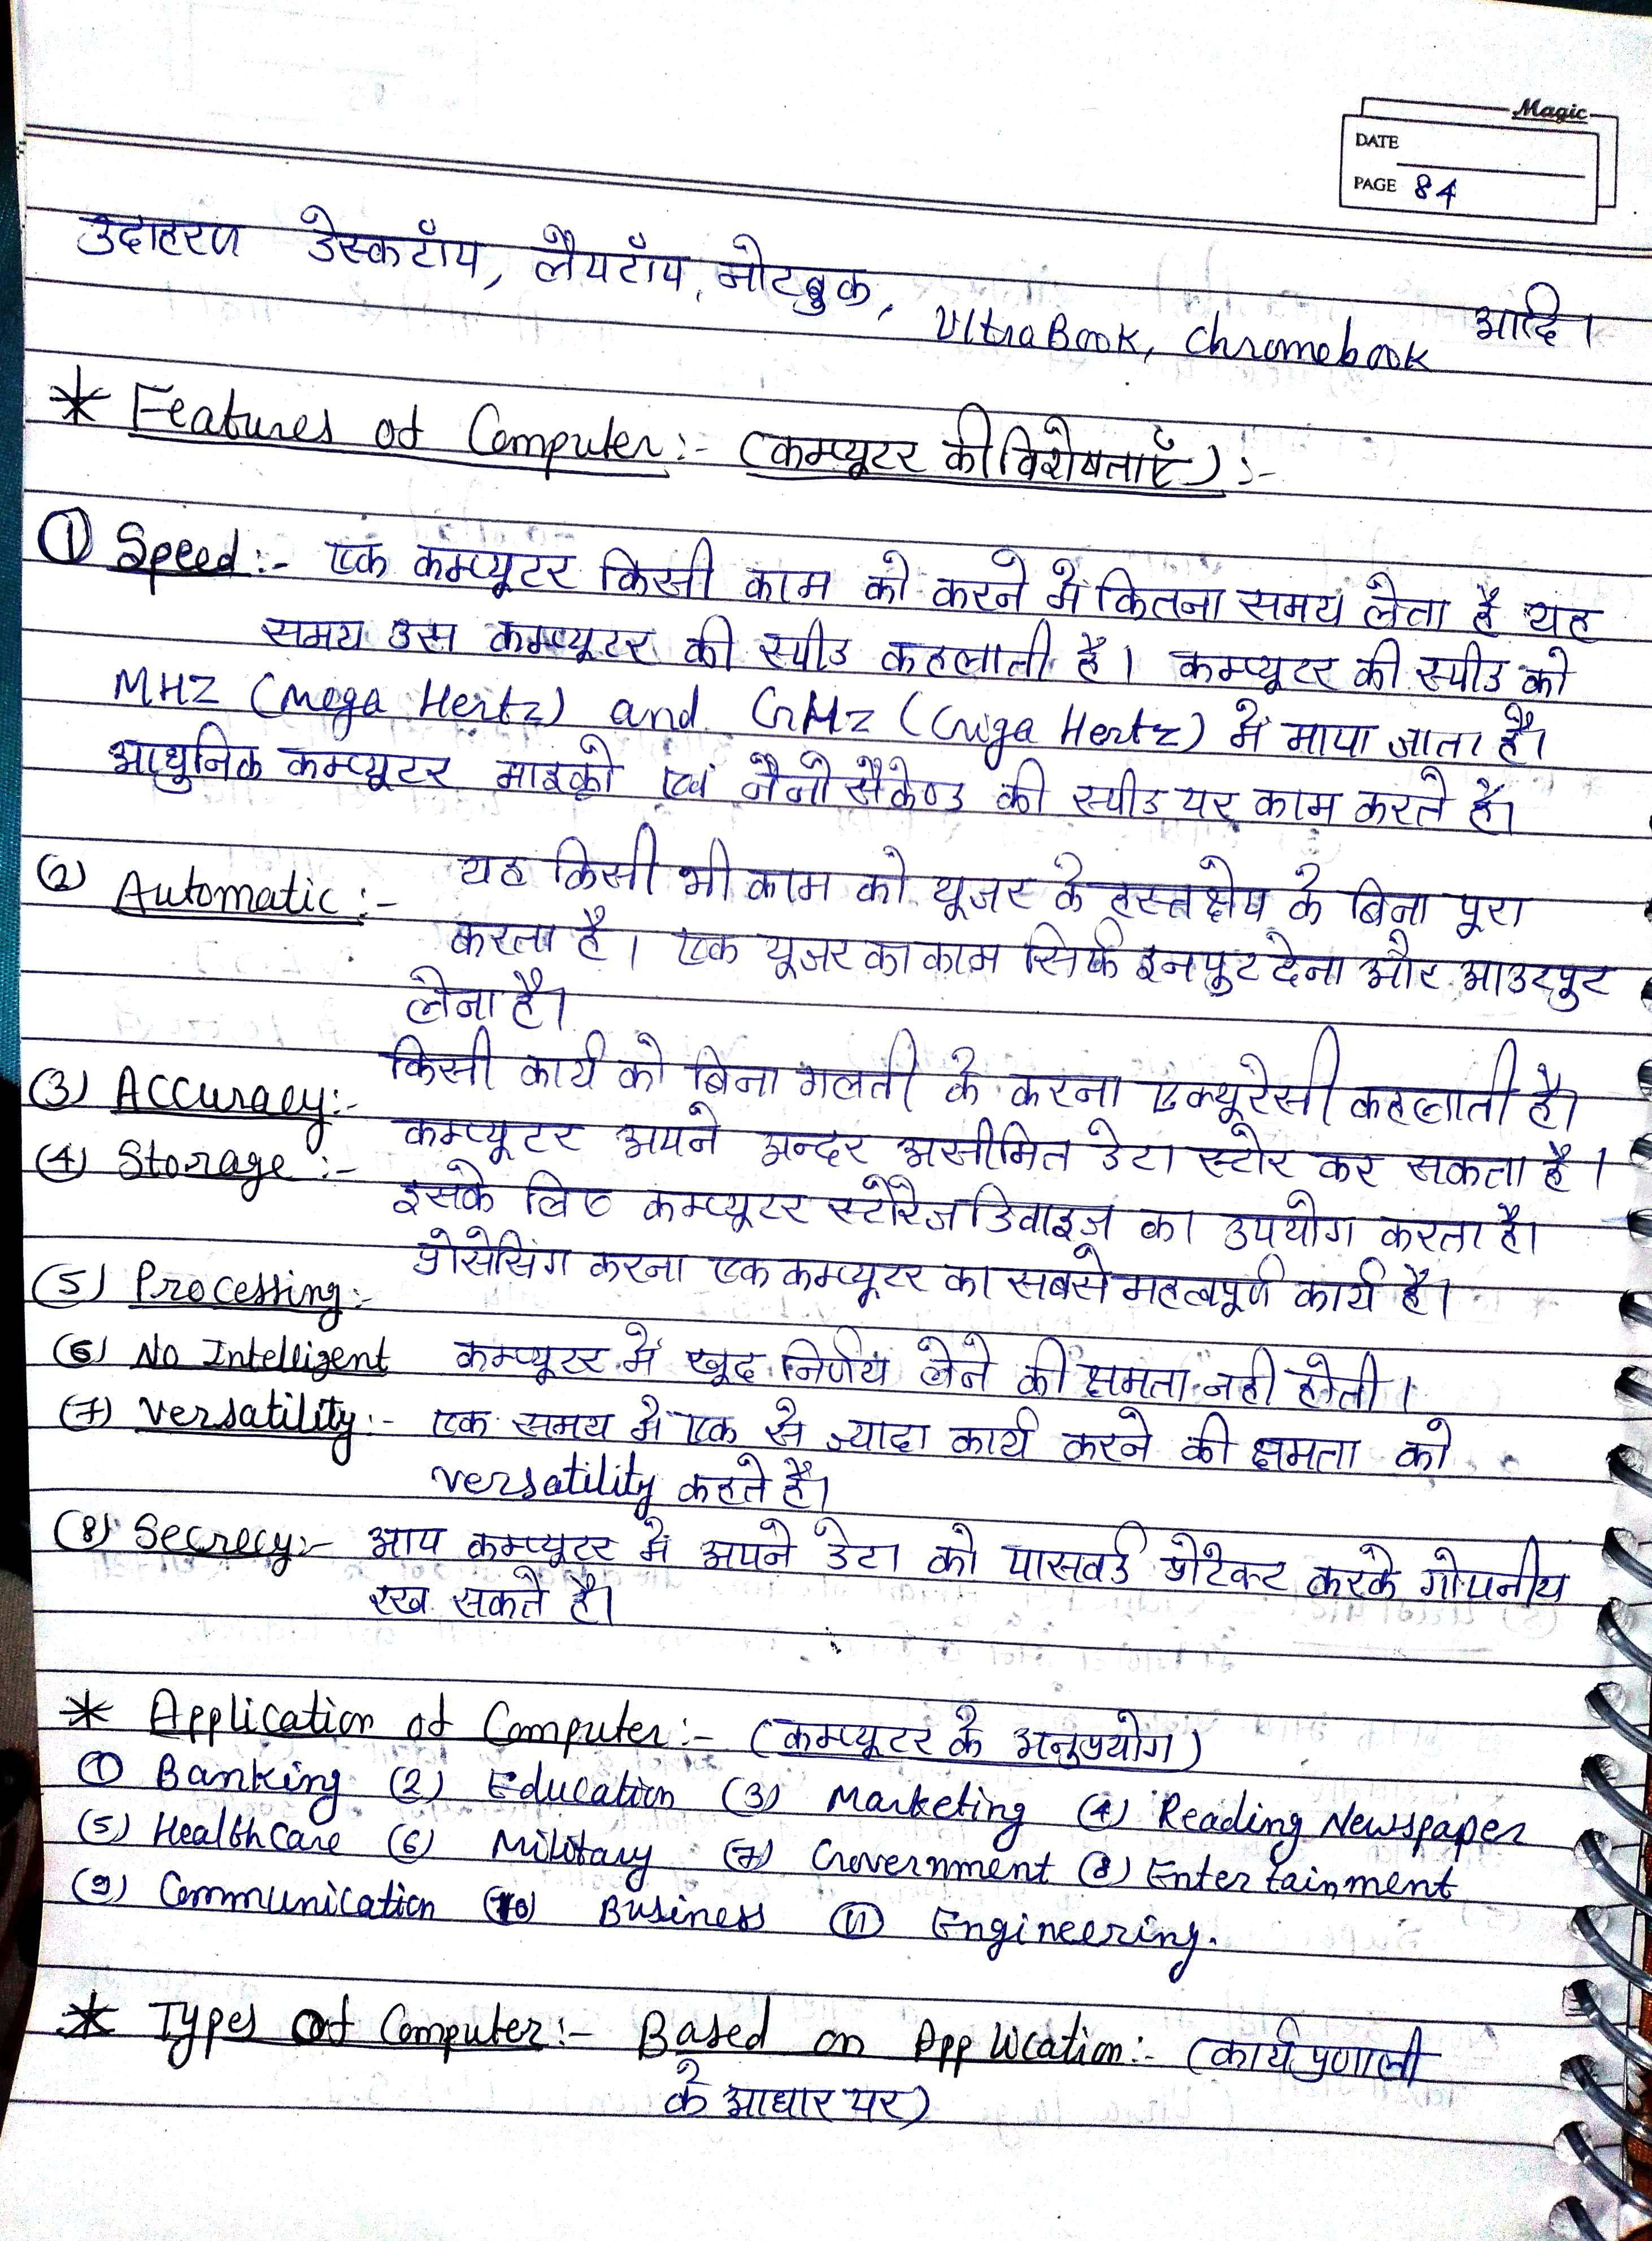 Magic
DATE
PAGE 84
उदाहरण डेस्कटॉप, लैपटॉप, नोटबुक, UltraBook, Chromebook आदि।
* Features of Computer:- (कम्प्यूटर की विशेषताएँ):-
① Speed:- एक कम्प्यूटर किसी काम को करने में कितना समय लेता है यह
समय उस कम्प्यूटर की स्पीड कहलाती है। कम्प्यूटर की स्पीड को
MHZ (Mega Hertz) and GHz (Giga Hertz) में मापा जाता है।
आधुनिक कम्प्यूटर माइक्रो एवं नैनो सैकेण्ड की स्पीड पर काम करते हैं।
(2) Automatic:- यह किसी भी काम को यूजर के हस्तक्षेप के बिना पूरा
करता है। एक यूजर का काम सिर्फ इनपुट देना और आउटपुट
लेना है।
(3) Accuracy:- किसी कार्य को बिना गलती के करना एक्यूरेसी कहलाती है।
(4) Storage:- कम्प्यूटर अपने अन्दर असीमित डेटा स्टोर कर सकता है।
इसके लिए कम्प्यूटर स्टोरेज डिवाइज का उपयोग करता है।
(5) Processing:- प्रोसेसिंग करना एक कम्प्यूटर का सबसे महत्वपूर्ण कार्य है।
(6) No Intelligent कम्प्यूटर में खुद निर्णय लेने की क्षमता नही होती।
(7) versatility:- एक समय में एक से ज्यादा कार्य करने की क्षमता को
versatility कहते हैं।
(8) Secrecy:- आप कम्प्यूटर में अपने डेटा को पासवर्ड प्रोटेक्ट करके गोपनीय
रख सकते हैं।
* Application of Computer:- (कम्प्यूटर के अनुप्रयोग)
① Banking (2) Education (3) Marketing (4) Reading Newspaper
(5) Healthcare (6) Military (7) Government (8) Entertainment
(9) Communication (10) Business ⑪ Engineering.
* Types of Computer:- Based on Application:- (कार्यप्रणाली
के आधार पर)